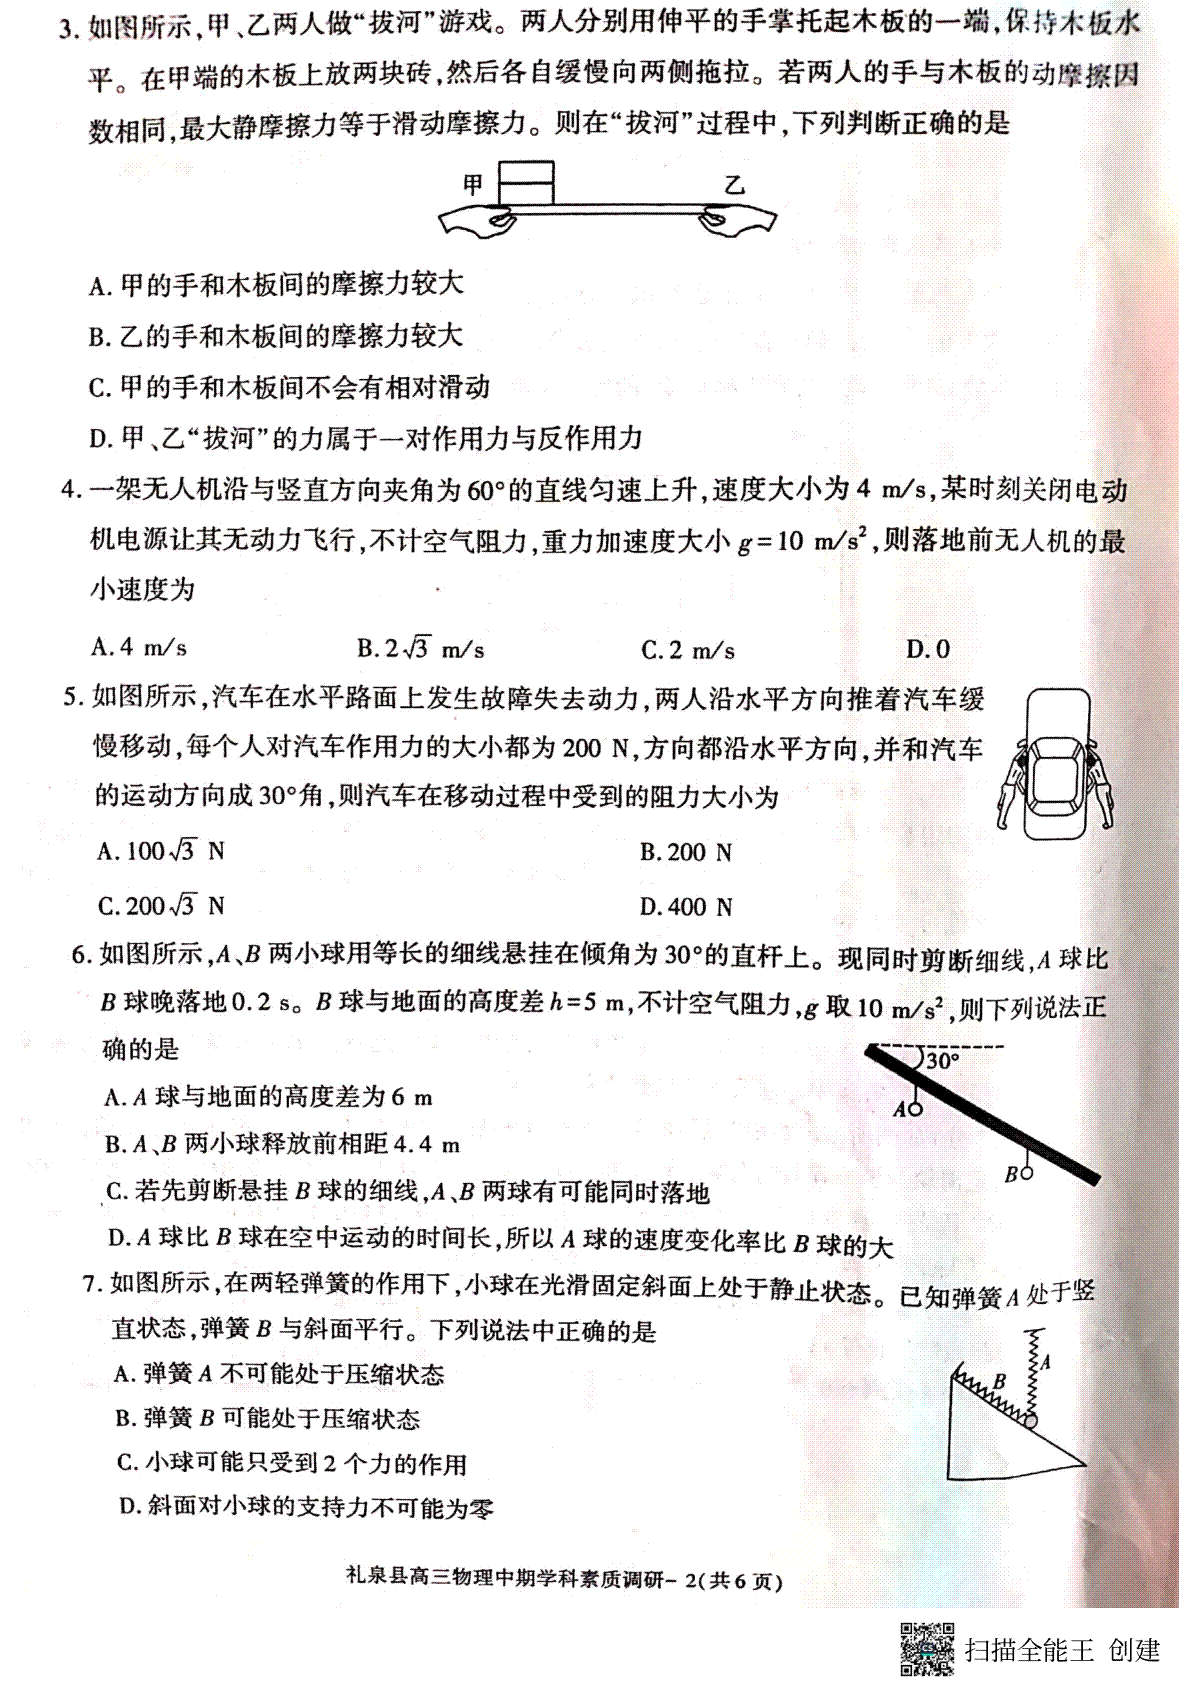 3. 如图所示,甲、乙两人做“拔河”游戏。两人分别用伸平的手掌托起木板的一端,保持木板水
平。在甲端的木板上放两块砖,然后各自缓慢向两侧拖拉。若两人的手与木板的动摩擦因
数相同,最大静摩擦力等于滑动摩擦力。则在“拔河”过程中,下列判断正确的是
甲
乙
A. 甲的手和木板间的摩擦力较大
B. 乙的手和木板间的摩擦力较大
C. 甲的手和木板间不会有相对滑动
D. 甲、乙“拔河”的力属于一对作用力与反作用力
4. 一架无人机沿与竖直方向夹角为60°的直线匀速上升,速度大小为4 m/s,某时刻关闭电动
机电源让其无动力飞行,不计空气阻力,重力加速度大小g=10 m/s²,则落地前无人机的最
小速度为
A. 4 m/s B. 2√3 m/s C. 2 m/s D. 0
5. 如图所示,汽车在水平路面上发生故障失去动力,两人沿水平方向推着汽车缓
慢移动,每个人对汽车作用力的大小都为200 N,方向都沿水平方向,并和汽车
的运动方向成30°角,则汽车在移动过程中受到的阻力大小为
A. 100√3 N B. 200 N
C. 200√3 N D. 400 N
6. 如图所示,A、B两小球用等长的细线悬挂在倾角为30°的直杆上。现同时剪断细线,A球比
B球晚落地0.2 s。B球与地面的高度差h=5 m,不计空气阻力,g取10 m/s²,则下列说法正
确的是
30°
A
B
A. A球与地面的高度差为6 m
B. A、B两小球释放前相距4.4 m
C. 若先剪断悬挂B球的细线,A、B两球有可能同时落地
D. A球比B球在空中运动的时间长,所以A球的速度变化率比B球的大
7. 如图所示,在两轻弹簧的作用下,小球在光滑固定斜面上处于静止状态。已知弹簧A处于竖
直状态,弹簧B与斜面平行。下列说法中正确的是
A
B
A. 弹簧A不可能处于压缩状态
B. 弹簧B可能处于压缩状态
C. 小球可能只受到2个力的作用
D. 斜面对小球的支持力不可能为零
礼泉县高三物理中期学科素质调研- 2(共6页)
扫描全能王 创建